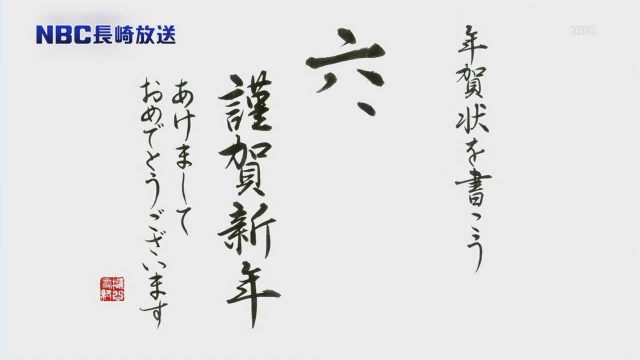 NBC長崎放送
年賀状を書こう
六、
謹賀新年
あけまして
おめでとうございます